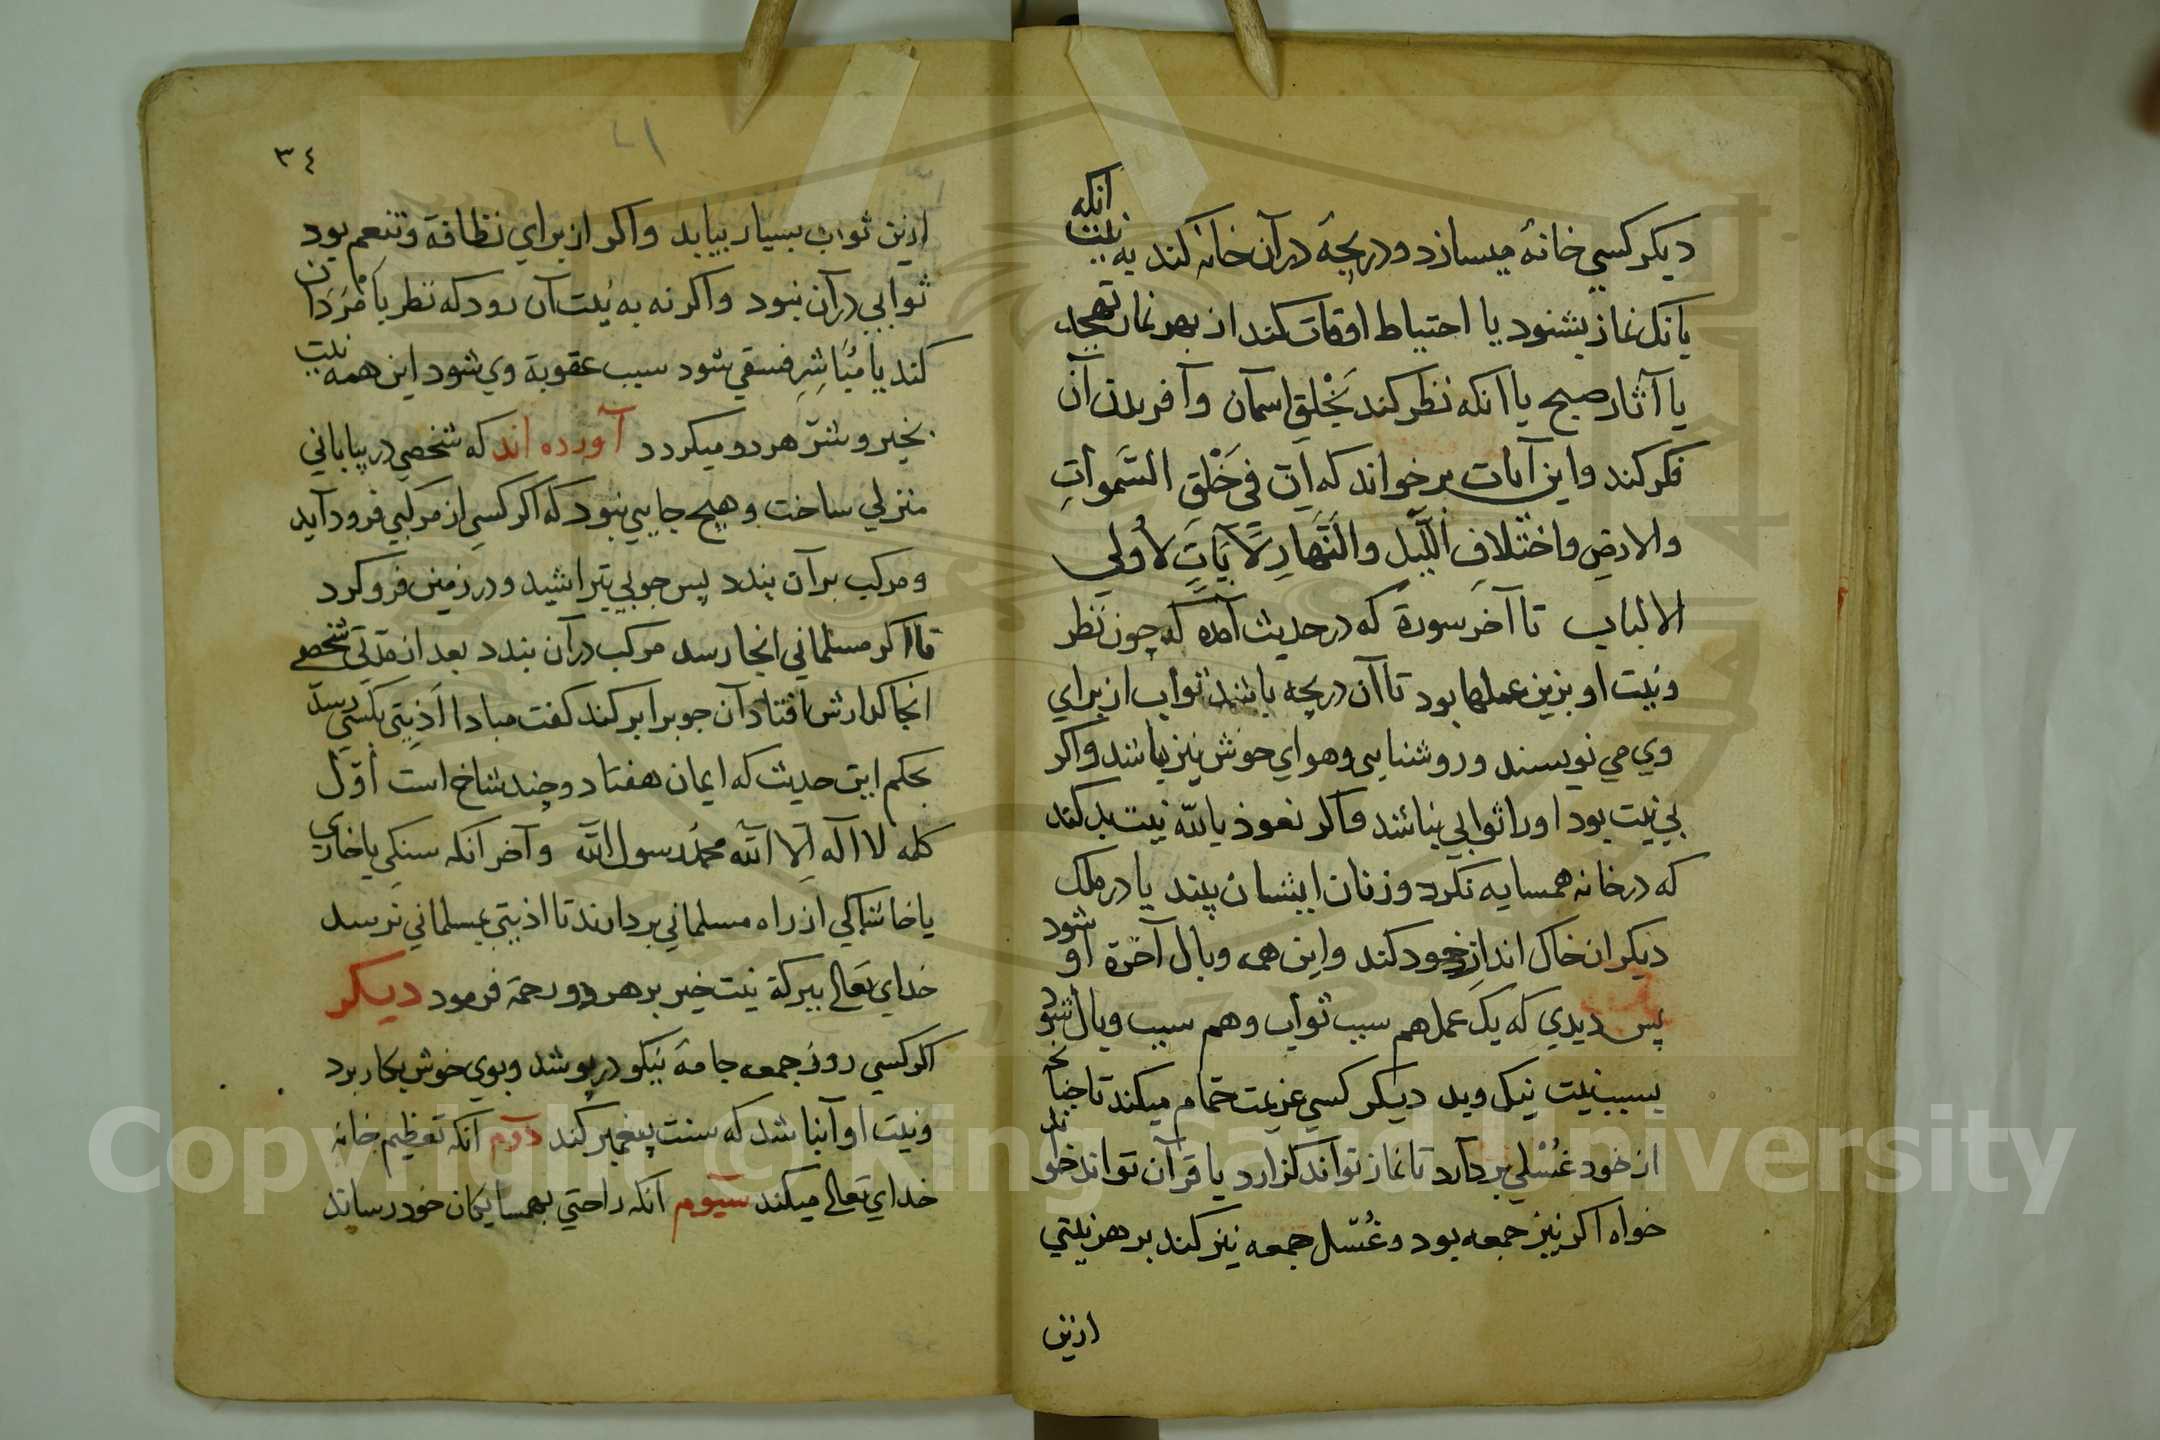 دیکر کسی خانهٔ میسازد و دریچهٔ در آن خانه کند به نیت انکه
بانک نماز بشنود یا احتیاط اوقات کند از بهر نماز تهجد
یا آثار صبح یا انکه نظر کند بخَلْقِ اسمان و آفریدن آن
فکر کند و این آیات بر خواند که اِنّ فی خَلْقِ السَّمواتِ
والارضِ واختلافِ اللَّیل والنَّهارِ لَآیَاتٍ لأولی
الالباب تا آخر سورة که در حدیث آمده که چون نظر
و نیت او بزین عملها بود تا آن دریچه باشد ثواب از برای
وی می نویسند و روشنایی و هوای خوش نیز باشد و اکر
بی نیت بود او را ثوابی نباشد و اکر نعوذ بالله نیت بد کند
که در خانه همسایه نکرد و زنان ایشان بیند یا در ملک
دیکران خاک انداز خود کند و این همه وبال آخرة او شود
پس دیدی که یک عمل هم سبب ثواب و هم سبب وبال شود
بسبب نیت نیک و بد دیکر کسی عزیمت حمام میکند تا جنابه
از خود غسلی بر دآرد تا نماز تواند کزارد یا قرآن تواند خواند
خواه اکر نیز جمعه بود و غُسل جمعه نیز کند بر هر نیتی
ازین
٣٤
٧١
ازین ثواب بسیار بیابد و اکر از برای نظافة و تنعم بود
ثوابی در آن نبود و اکر نه به نیت آن رود که نظر با مَرَدَان
کند یا مُبَاشِرِ فسقی شود سبب عقوبة وی شود این همه نیت
بخیر و شر هر دو میکردد آورده اند که شخصی در بیابانی
منزلی ساخت و هیچ جایی نبود که اکر کسی از مرکبی فرود آید
و مرکب بر آن بندد پس چوبی بتراشید و در زمین فرو کرد
تا اکر مسلمانی انجا رسد مرکب در آن بندد بعد از مدتی شخصی
انجا کذارش افتاد آن چوب را بر کند کفت مبادا اذیتی بکسی رسد
بحکم این حدیث که ایمان هفتاد و چند شاخ است اول
کلمه لا اله الا الله محمد رسول الله و آخر آنکه سنکی یا خاری
یا خاشاکی از راه مسلمانی بردارند تا اذیتی بمسلمانی نرسد
خدای تعالی ببرکة نیت خیر بر هر دو رحمة فرمود دیکر
اکر کسی روز جمعه جامهٔ نیکو در پوشد و بوی خوش بکار برد
و نیت او آنباشد که سنت پیغمبر کند دوم آنکه تعظیم خانه
خدای تعالی میکند سیوم آنکه راحتی بهمسایکان خود رساند
Copyright © King Saud University